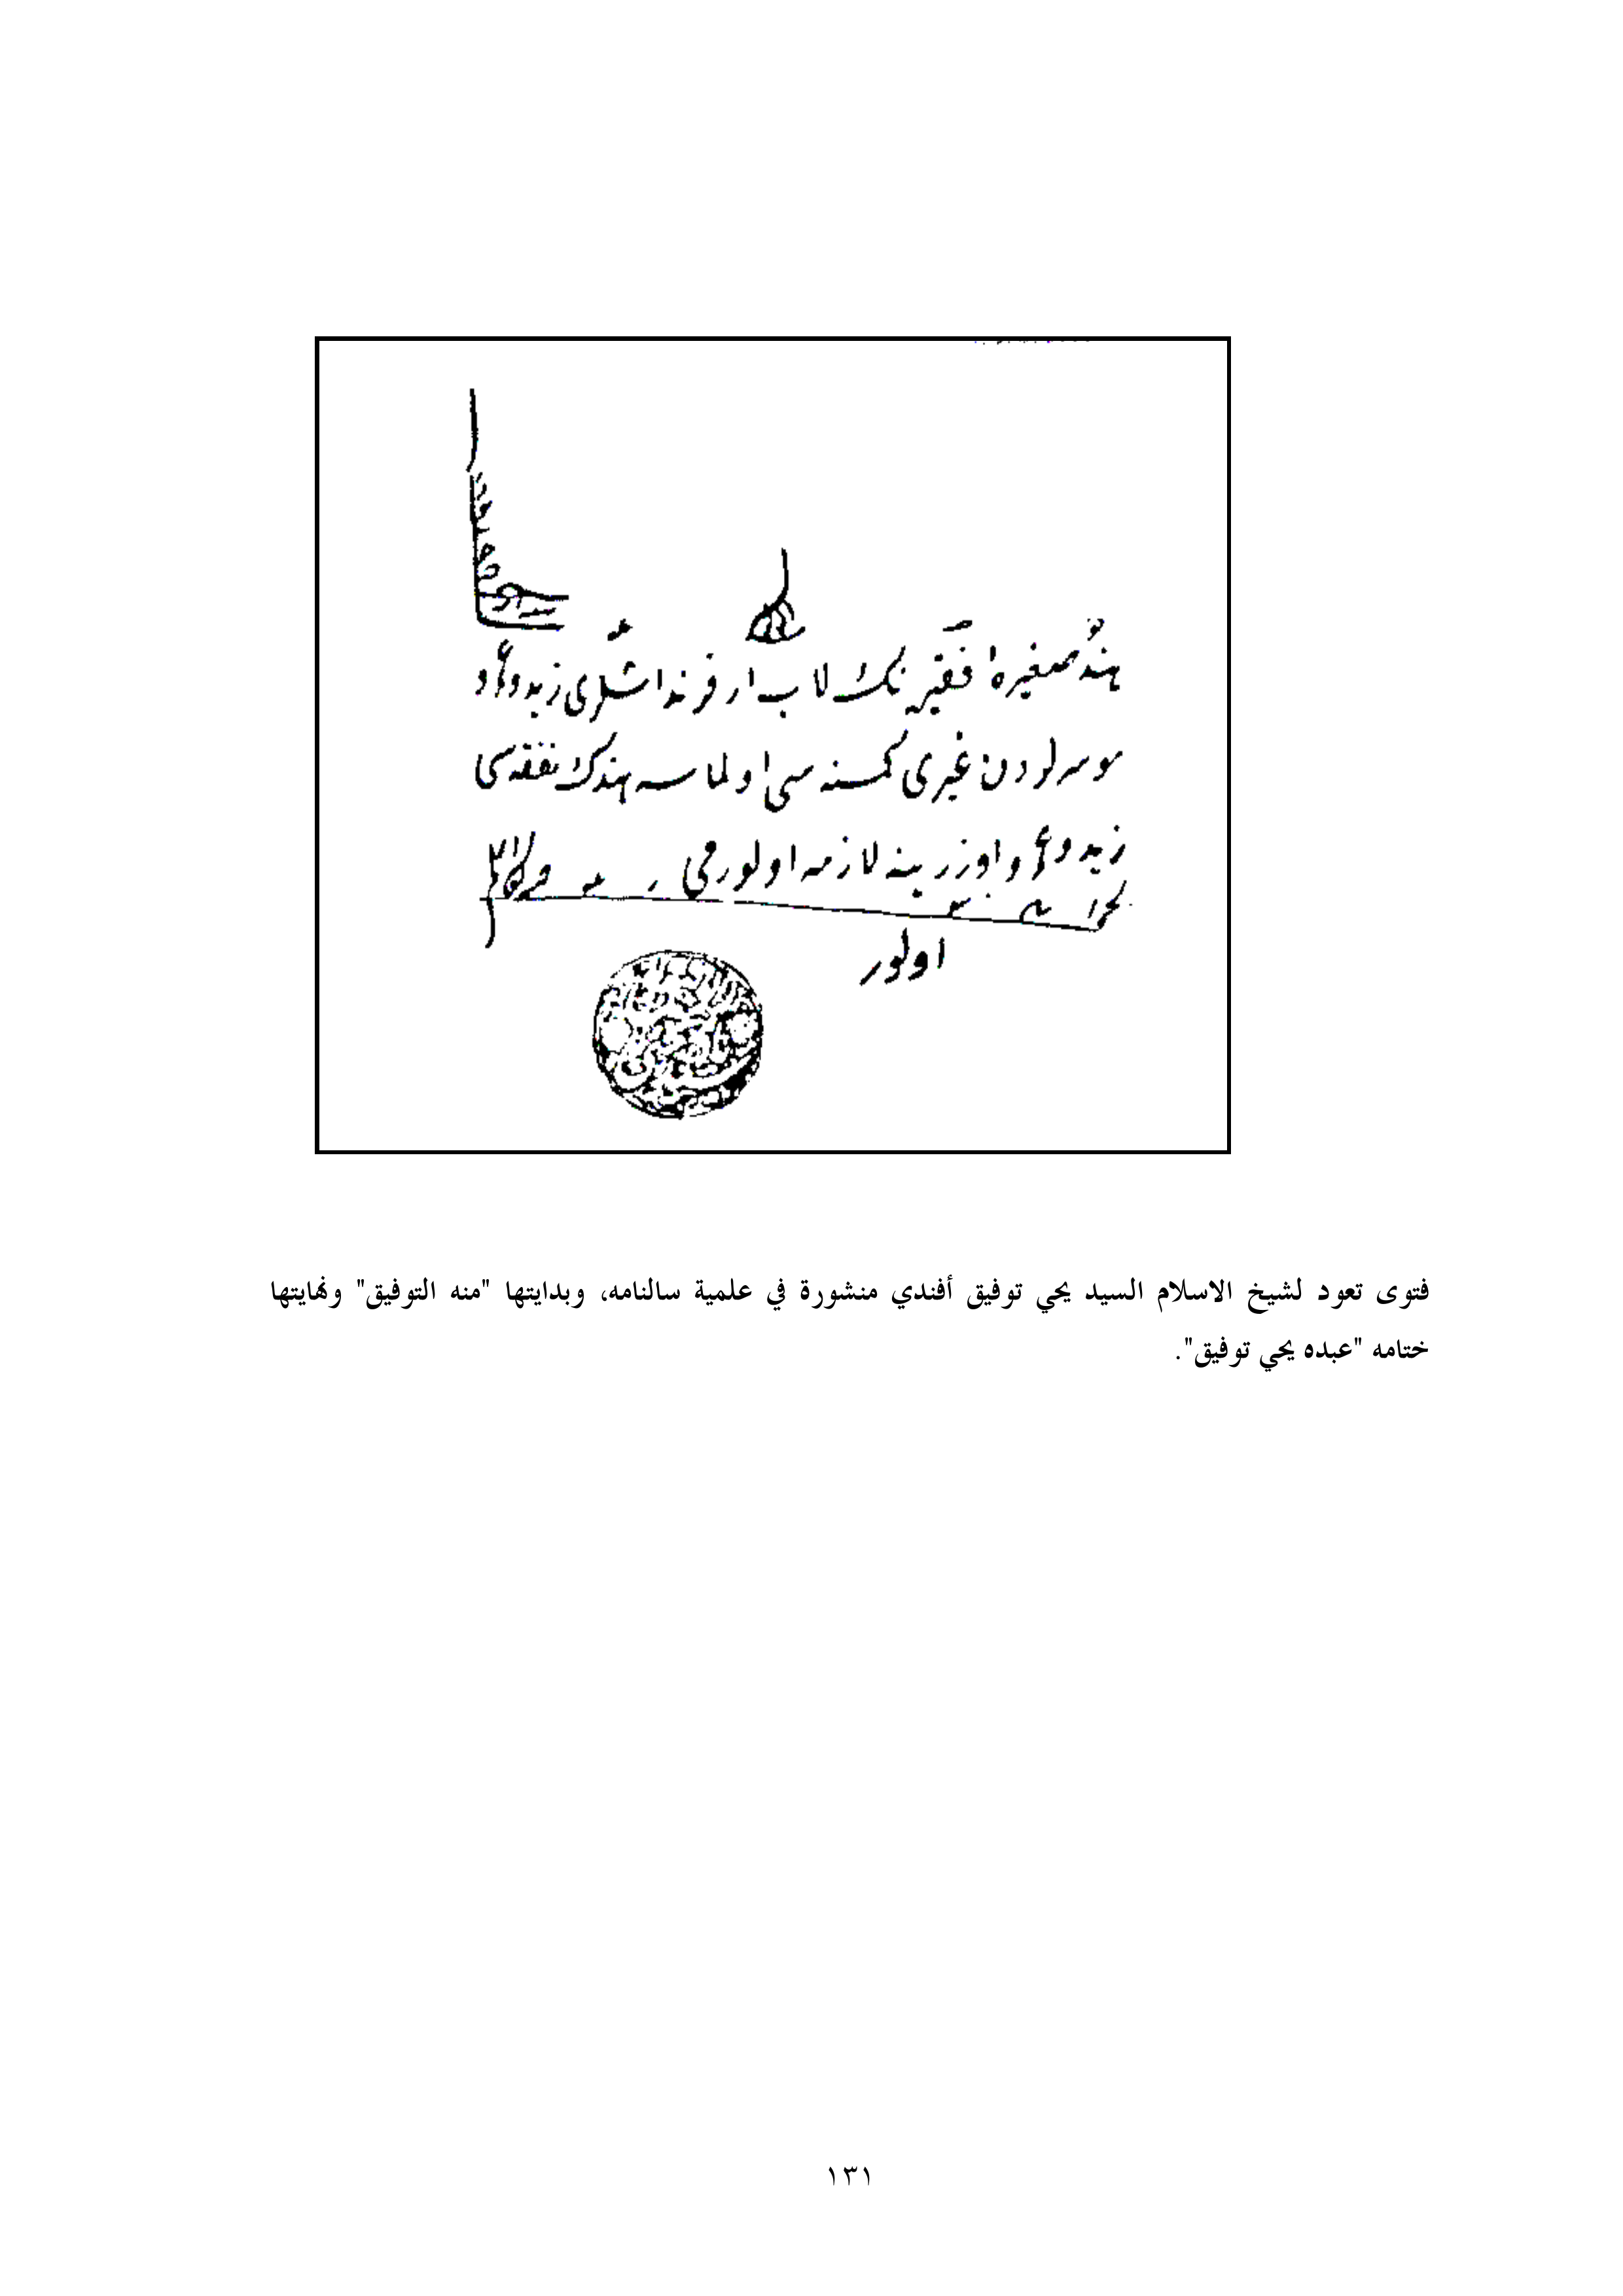 هند صغيرهٔ فقيره نك لاب ار قرنداشلرى زيد وعمرو
موسرلردن غيرى كمسنه سى اولماسه هندك نفقه سى
زيد وعمرو اوزرينه لازمه اولورمى
الجواب
اولور
فتوى تعود لشيخ الاسلام السيد يحي توفيق أفندي منشورة في علمية سالنامه، وبدايتها "منه التوفيق" ونهايتها
ختامه "عبده يحي توفيق".
١٣١